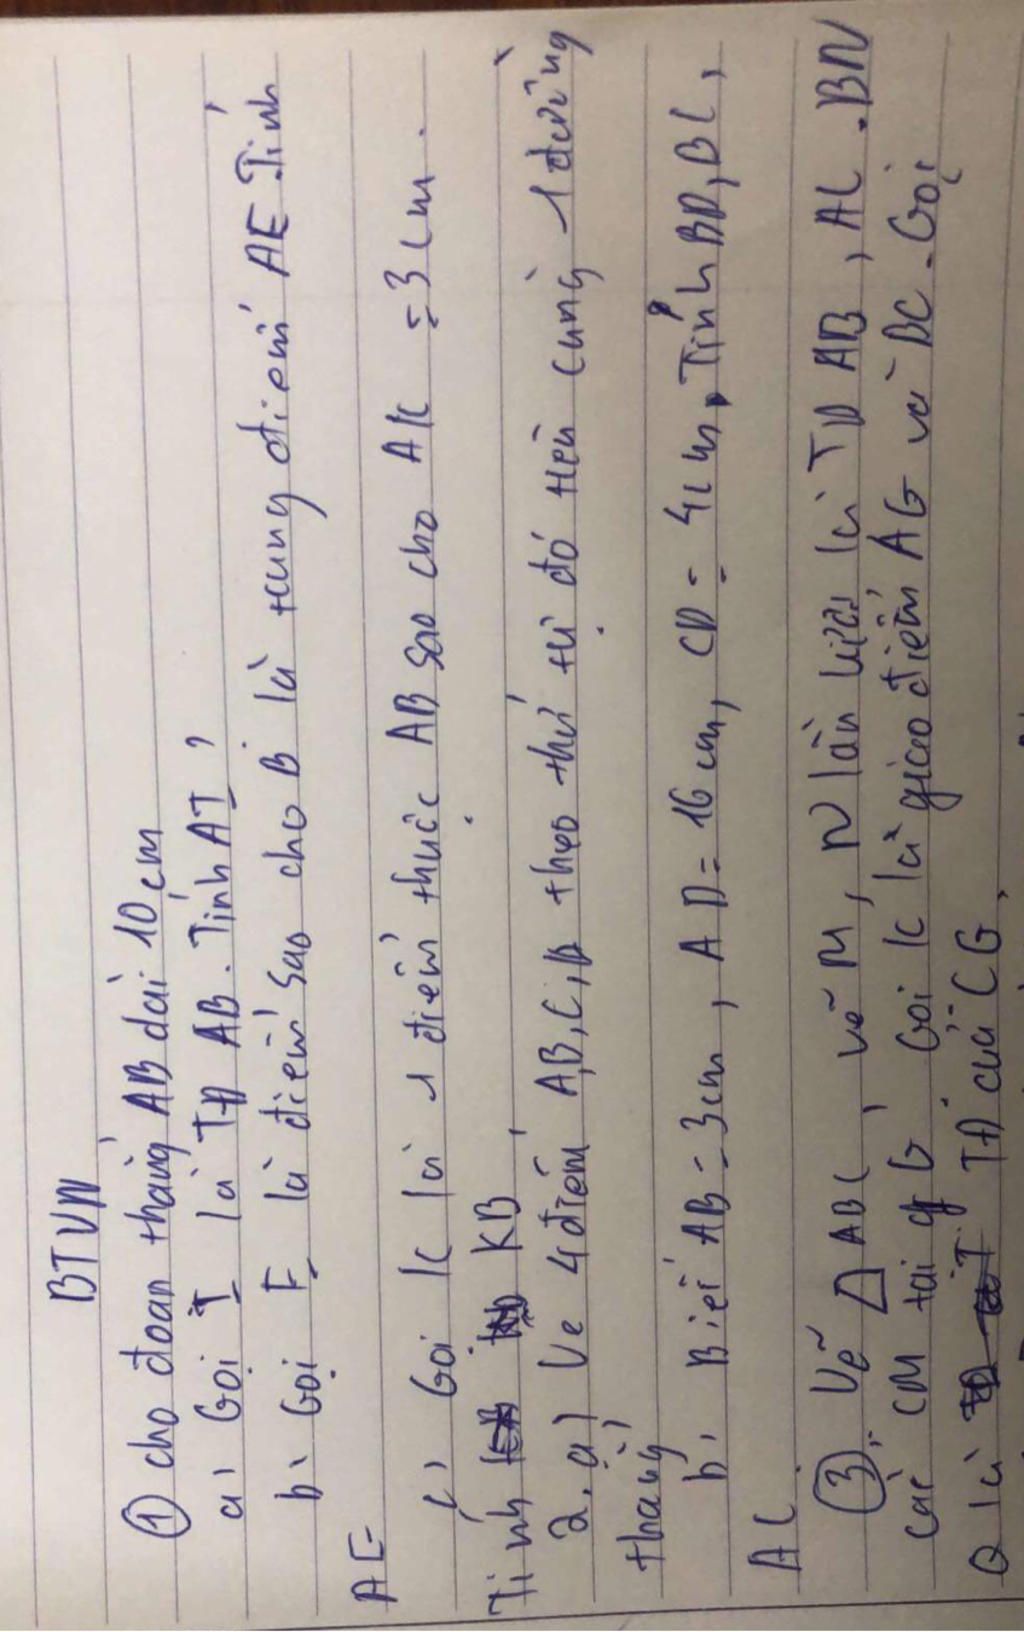 BTVN
① cho đoạn thẳng AB dài 10 cm
a, Gọi I là TĐ AB. Tính AI,
b, Gọi E là điểm sao cho B là trung điểm AE. Tính
AE
c, Gọi K là 1 điểm thuộc AB sao cho AK = 3cm.
Tính KB
2. a) Vẽ 4 điểm A,B,C,D theo thứ tự đó trên cùng 1 đường
thẳng
b, Biết AB = 3cm, AD = 16 cm, CD = 4cm. Tính BD, BC,
AC
③, Vẽ Δ ABC, vẽ M, N lần lượt là TĐ AB, AC. BN
cắt CM tại G. Gọi K là giao điểm AG và BC. Gọi
Q là TĐ của CG,